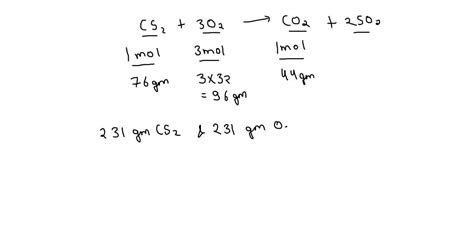 CS₂ + 3O₂ → CO₂ + 2SO₂
1 mol 3 mol 1 mol
76 gm 3x32 44 gm
= 96 gm
231 gm CS₂ & 231 gm O.